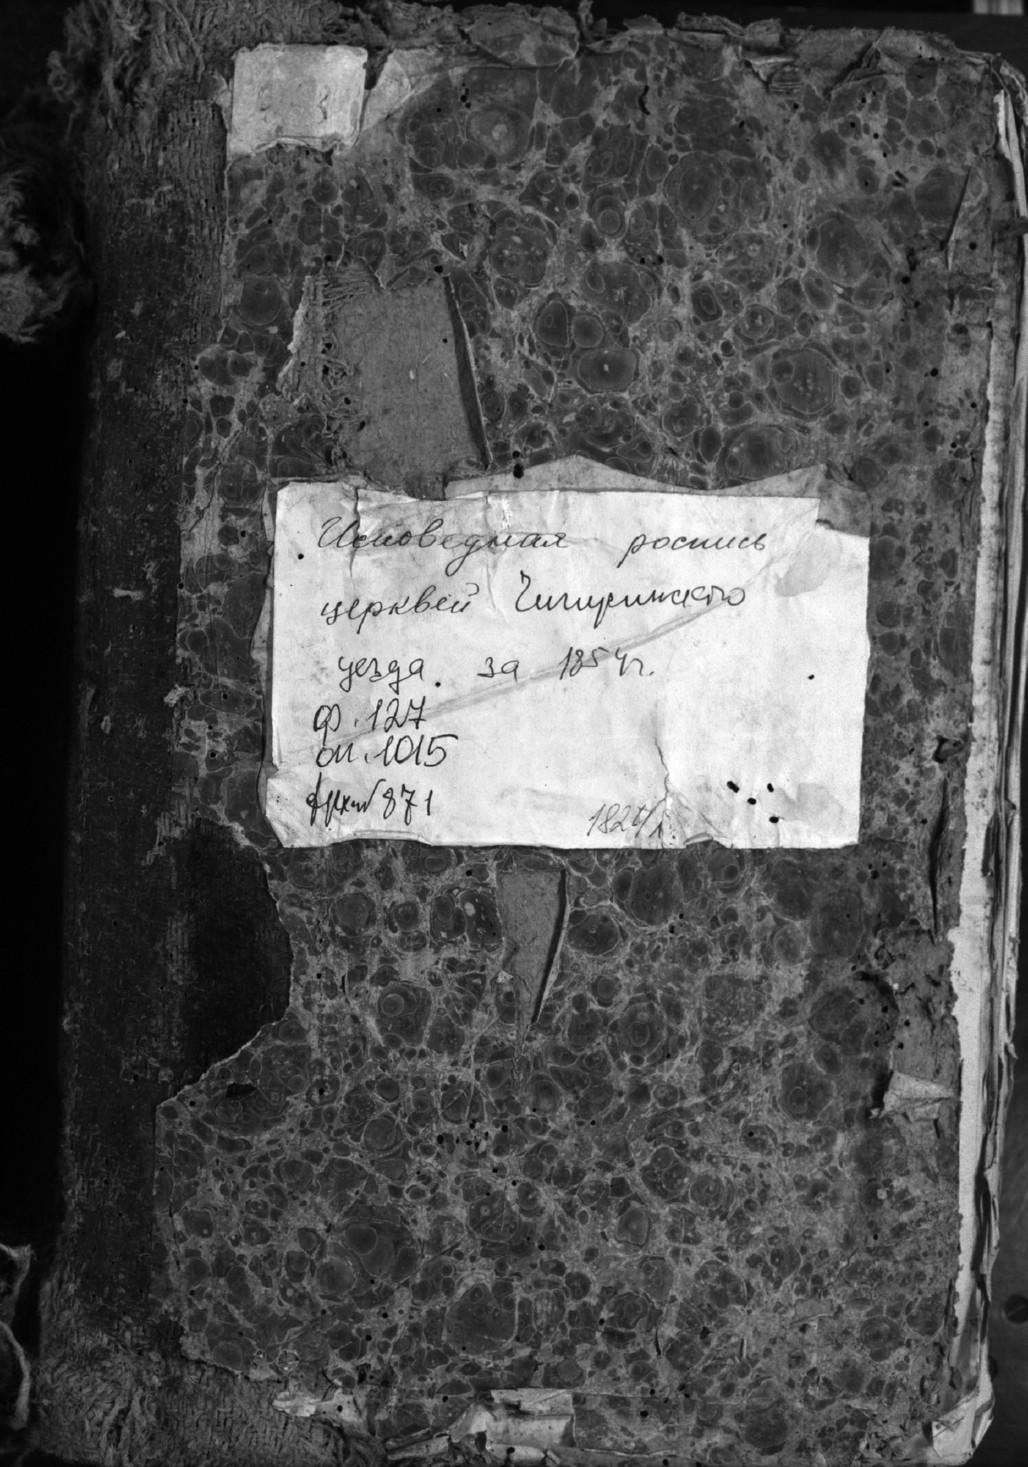 Исповедная роспись
церквей Чигиринского
уезда. за 1854г.
ф.127
оп.1015
871